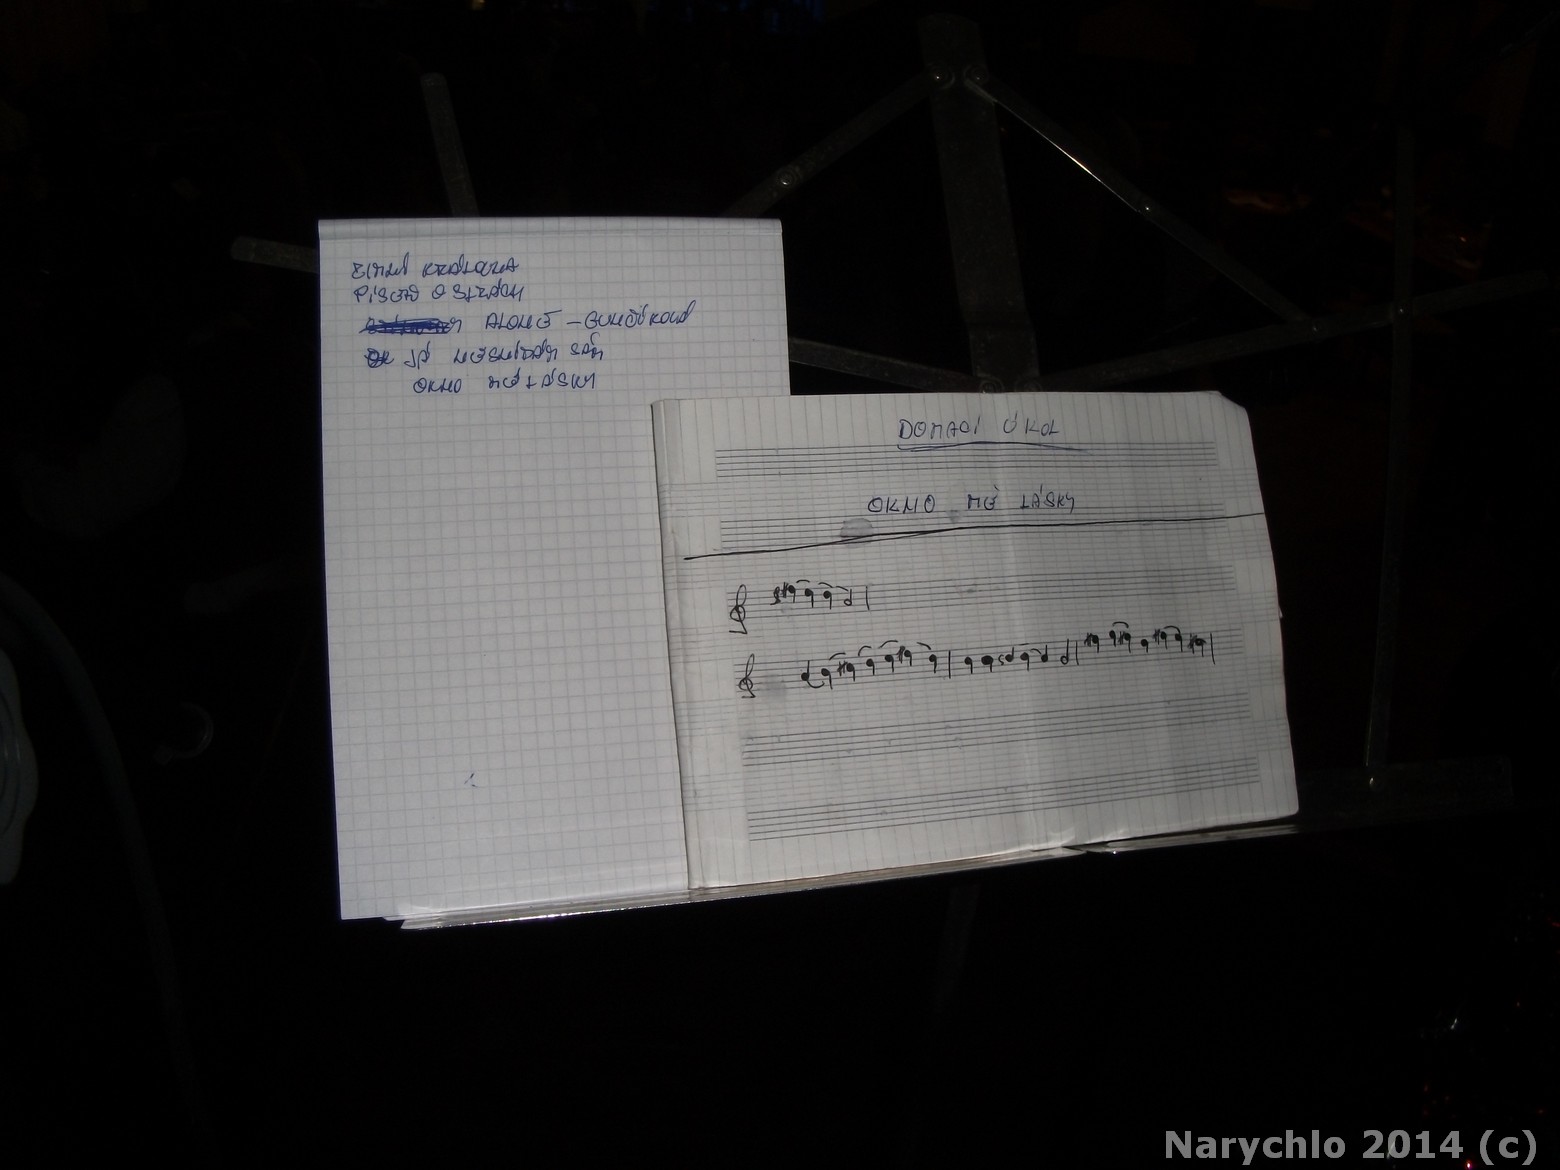 ZIMNÍ KRÁLOVNA
PÍSEŇ O STRACH
ALONE - GUMOÍKOVÁ
JÁ NESNÍDÁM SÁM
OKNO MÉ LÁSKY
DOMACÍ ÚKOL
OKNO MÉ LÁSKY
Narychlo 2014 (c)